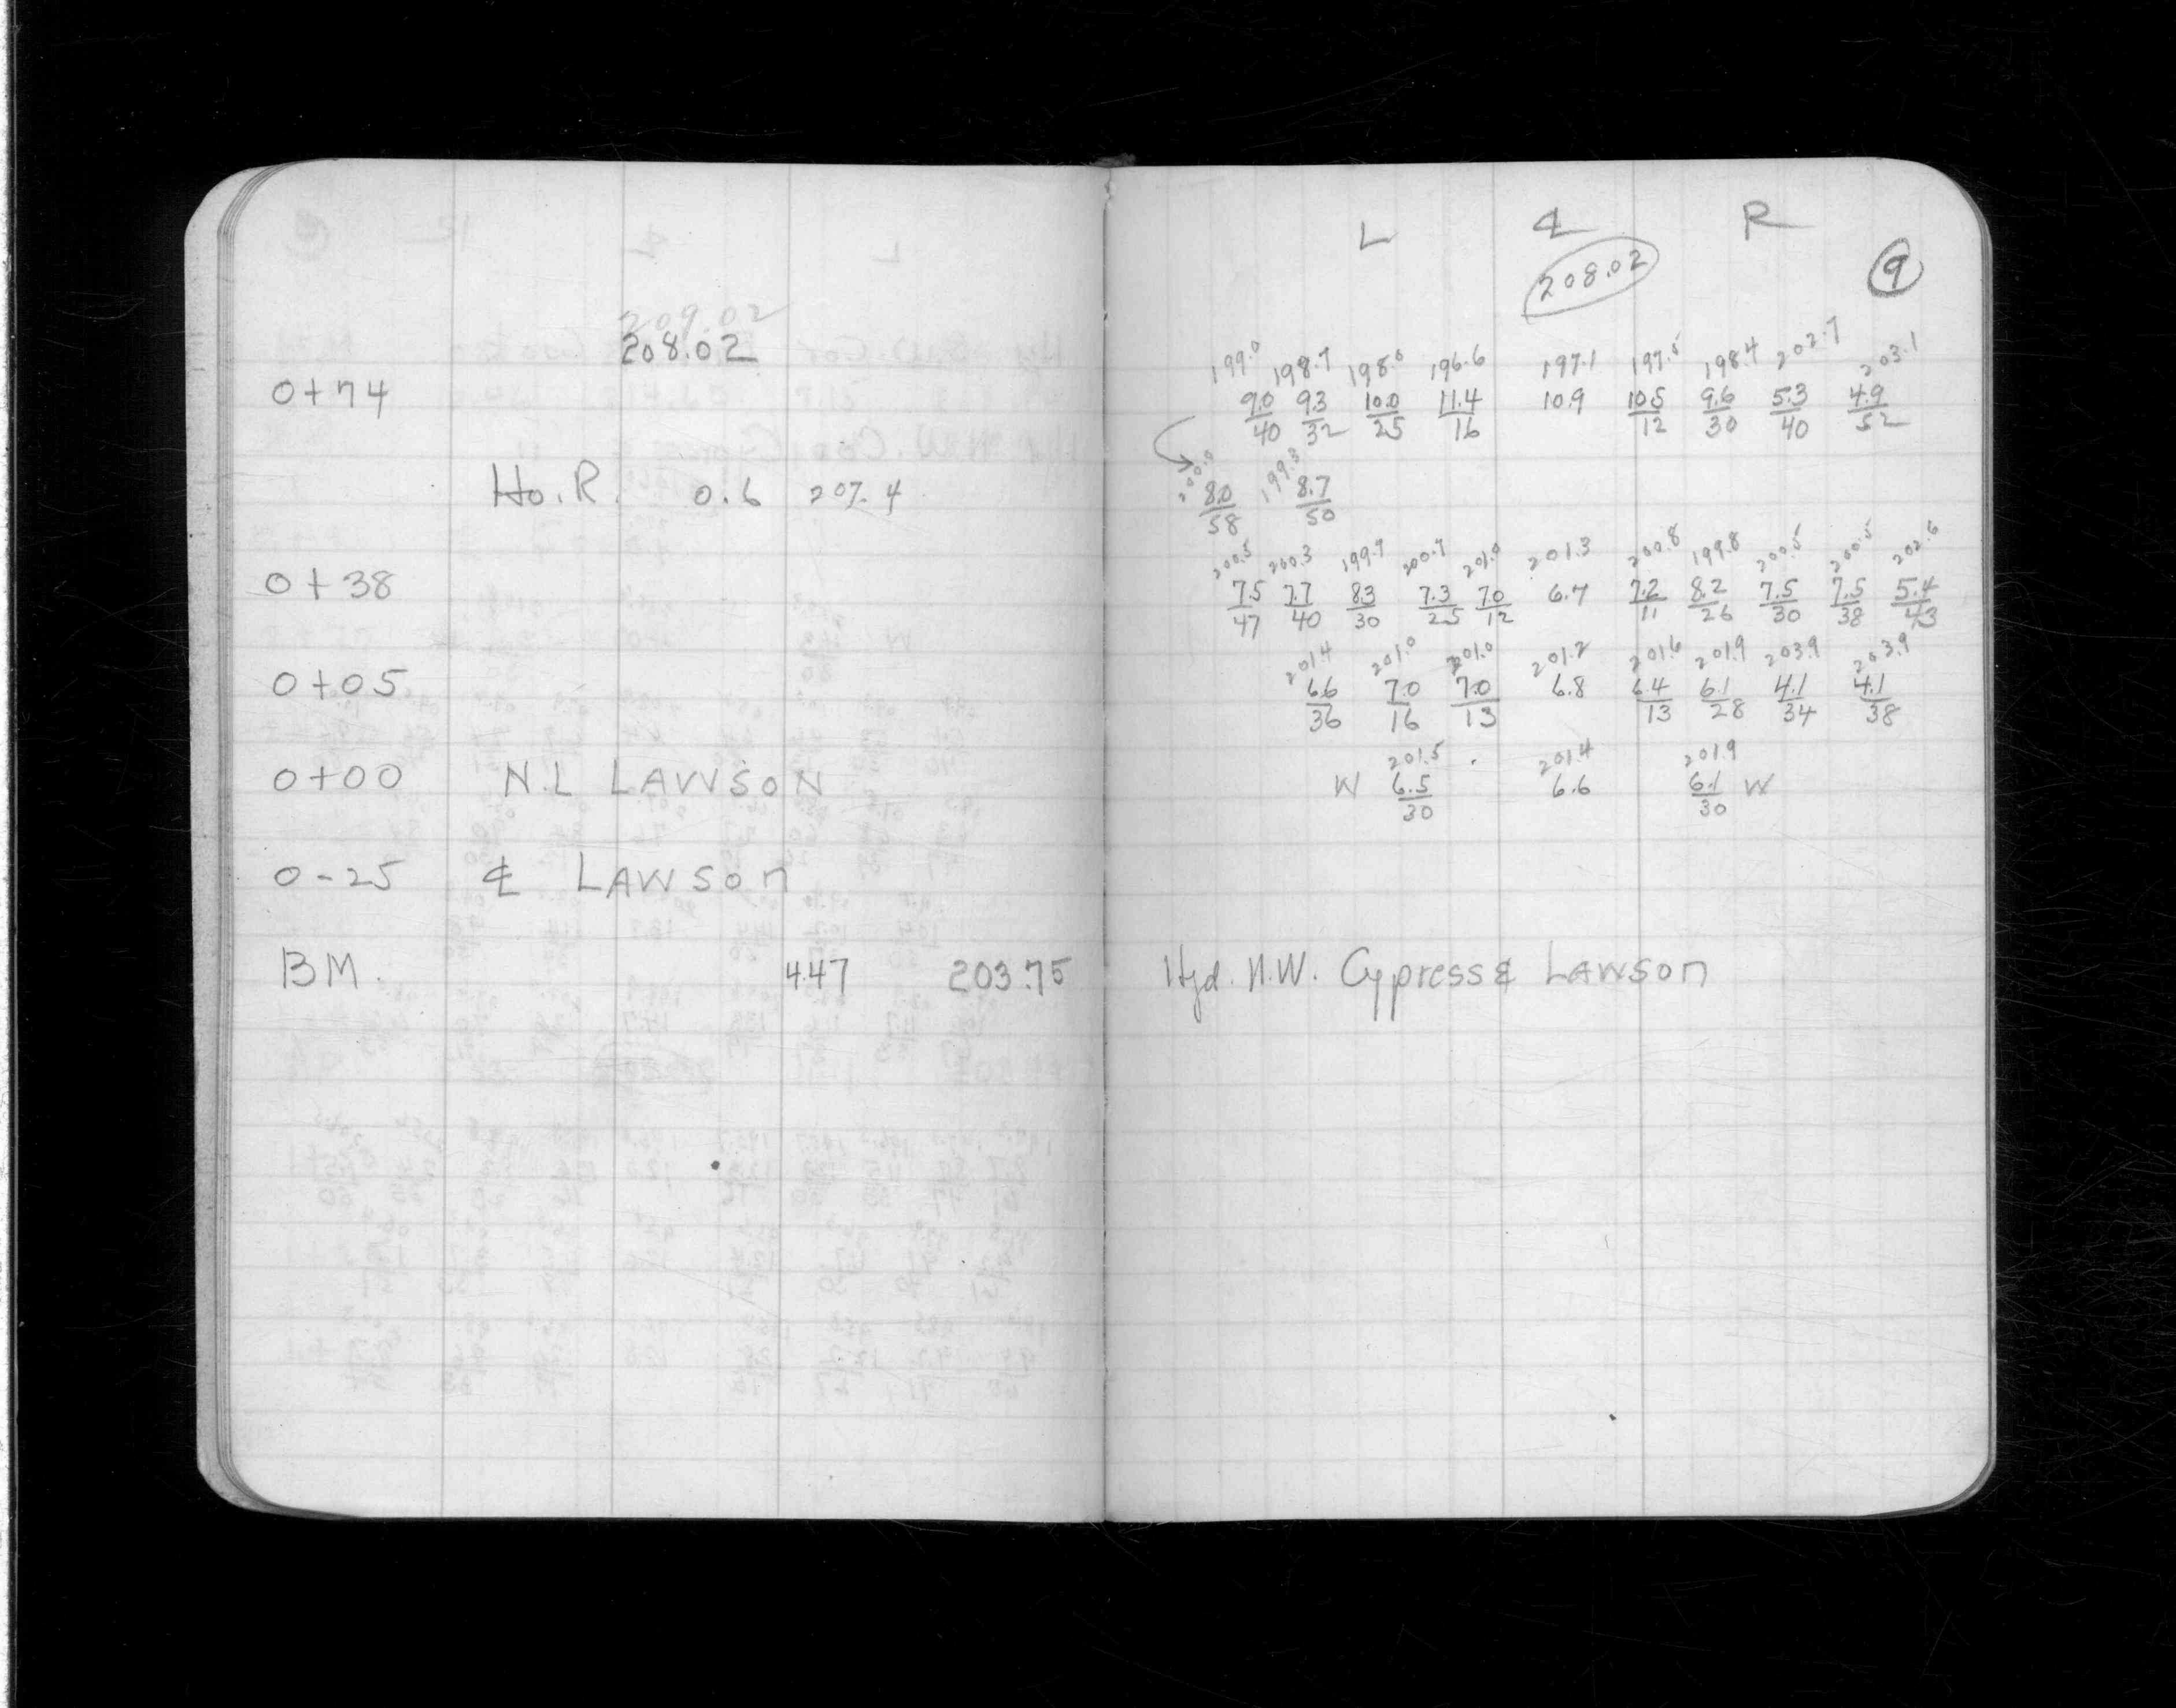 209.02
208.02
0+74
Ho.R. 0.6 207.4
0+38
0+05
0+00 N.L LAWSON
0-25 ℄ LAWSON
BM. 4.47 203.75
L ℄ R
208.02 9
199.0 198.7 198.0 196.6 197.1 197.5 198.4 202.7 203.1
9.0 9.3 10.0 11.4 10.9 10.5 9.6 5.3 4.9
40 32 25 16 12 30 40 52
200.0 199.3
8.0 8.7
58 50
200.5 200.3 199.7 200.7 201.0 201.3 200.8 199.8 200.5 200.5 202.6
7.5 7.7 8.3 7.3 7.0 6.7 7.2 8.2 7.5 7.5 5.4
47 40 30 25 12 11 26 30 38 43
201.4 201.0 201.0 201.2 201.6 201.9 203.9 203.9
6.6 7.0 7.0 6.8 6.4 6.1 4.1 4.1
36 16 13 13 28 34 38
201.5 201.4 201.9
W 6.5 6.6 6.1 W
30 30
Hyd. N.W. Cypress & LAWSON